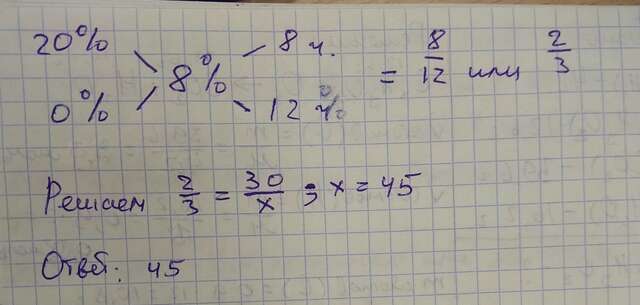 20% 8 ч.
8% = 8/12 или 2/3
0% 12 ч.
Решаем 2/3 = 30/x ; x = 45
Ответ: 45